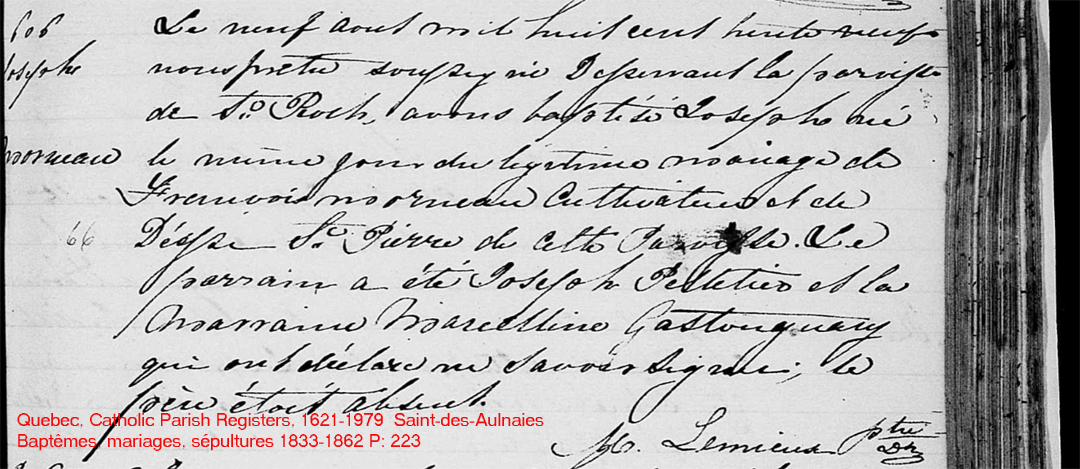 B06
Joseph
Morneau
66
Le neuf aout mil huit cent trente neuf
nous prêtre soussigné Desservant la paroisse
de St. Roch, avons baptisé Joseph né
le même jour du légitime mariage de
Francois Morneau Cultivateur et de
St. Pierre de cette Paroisse. Le
parrain a été Joseph Pelletier et la
Marraine Marcelline Gastonguay
qui ont déclaré ne savoir signer; le
père étoit absent.
Lemieux ptre
Dt
Quebec, Catholic Parish Registers, 1621-1979 Saint-des-Aulnaies
Baptêmes, mariages, sépultures 1833-1862 P: 223